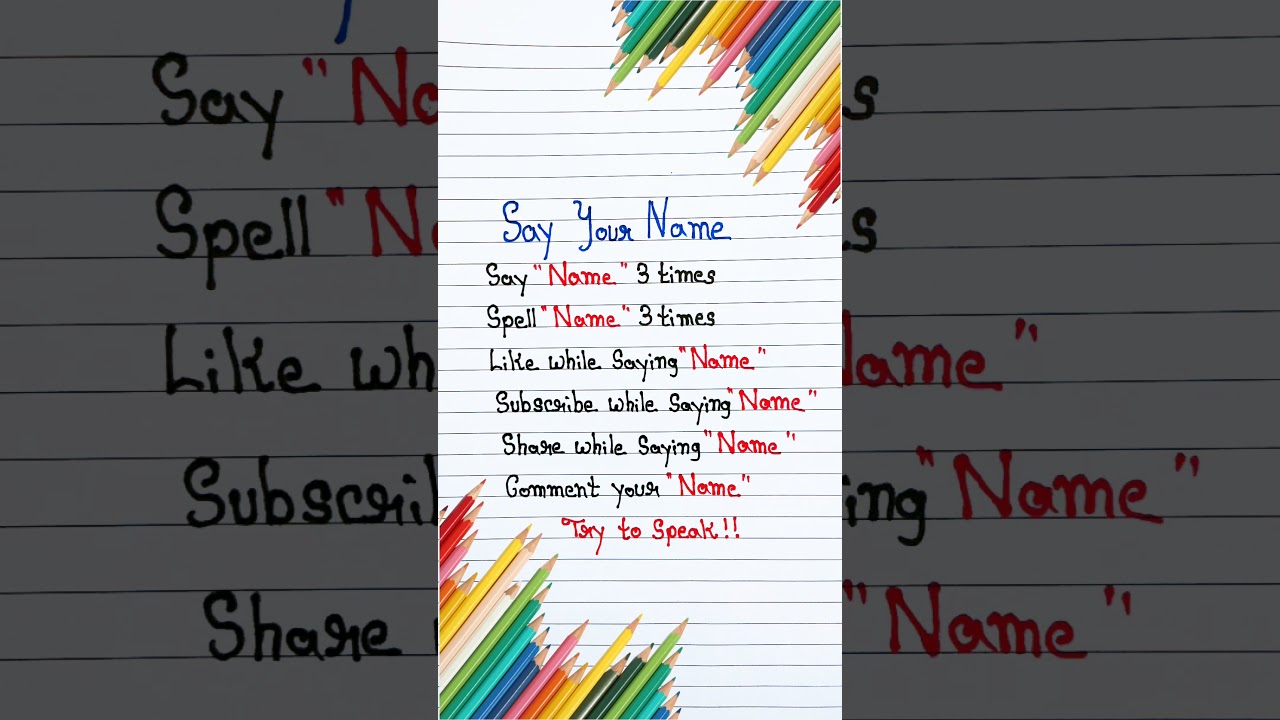 Say Your Name
Say "Name" 3 times
Spell "Name" 3 times
Like while Saying "Name"
Subscribe while Saying "Name"
Share while Saying "Name"
Comment your "Name"
Try to Speak!!